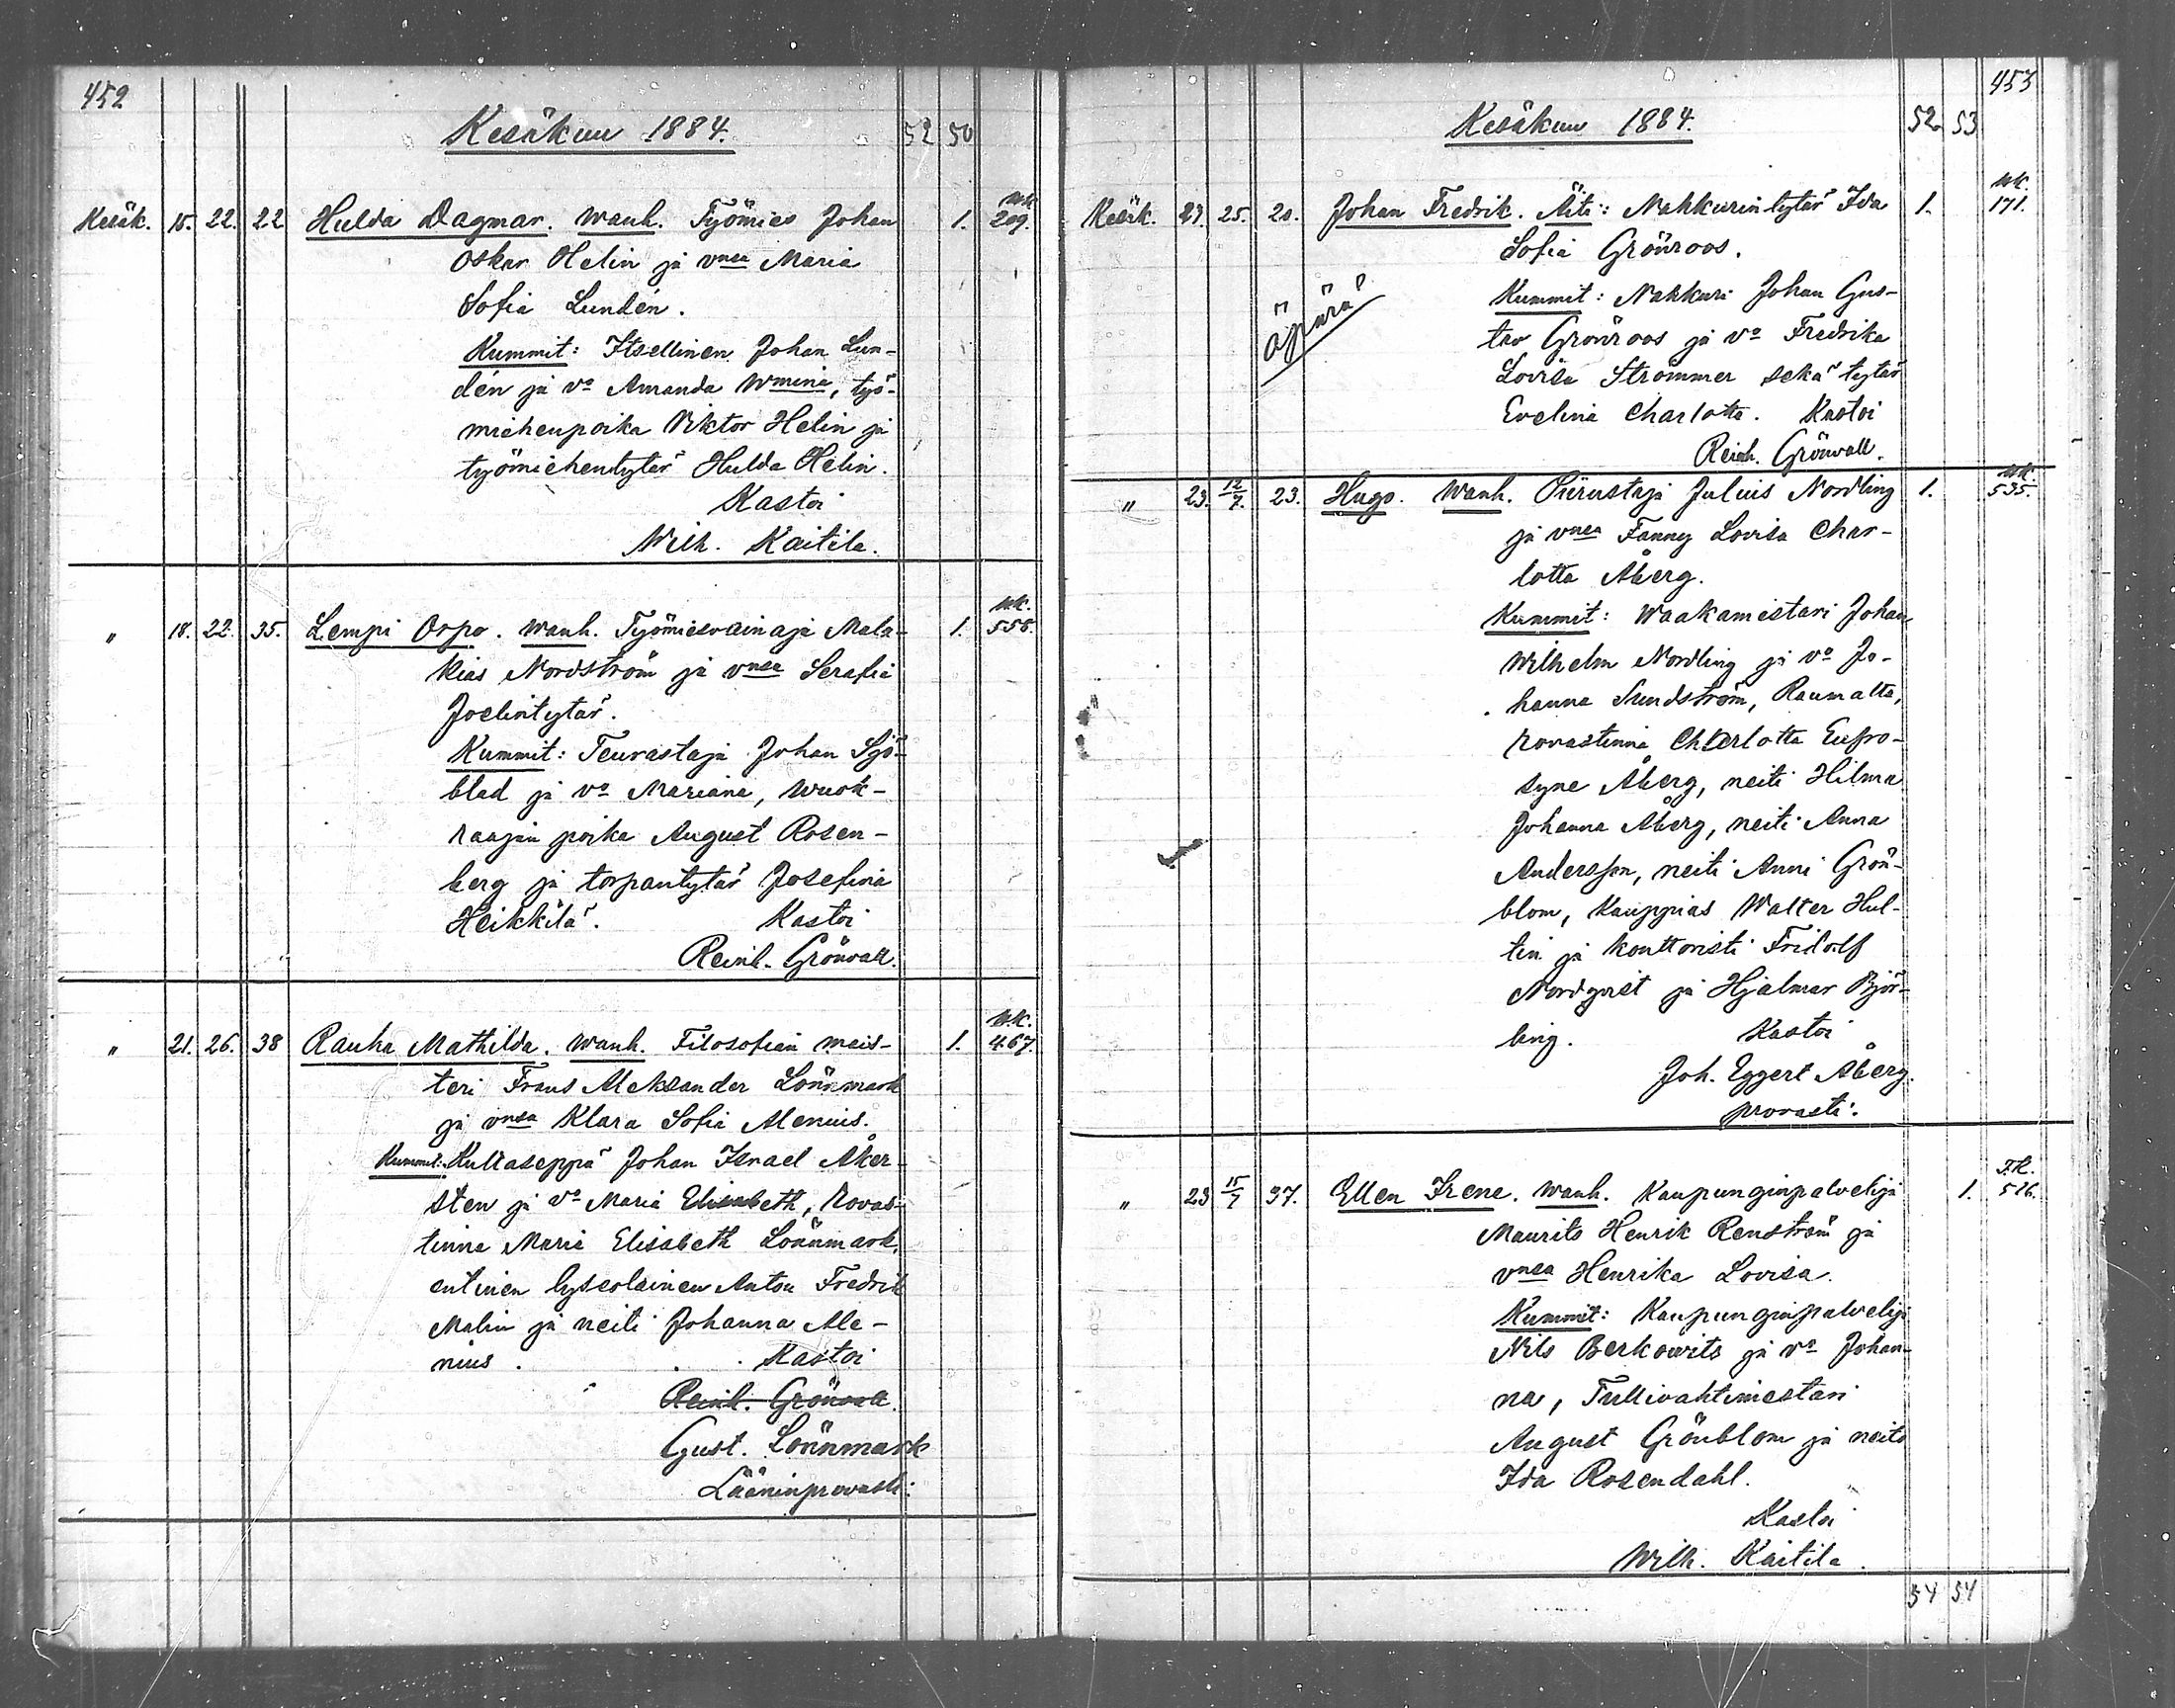 452
Kesäkuu 1884. 52 50
Kesäk. 15. 22. 22 Hulda Dagmar. Wanh. Työmies Johan 1. WK. 209.
Oskar Helin ja vnsa Maria
Sofia Lundén.
Kummit: Itsellinen Johan Lun-
dén ja vo Amanda Wmina, työ-
miehenpoika Viktor Helin ja
työmiehentytär Hulda Helin.
Kastoi
Wilh. Kaitila.
" 18. 22. 35. Lempi Orpo. Wanh. Työmiesvainaja Mala- 1. WK. 558.
kias Nordström ja vnsa Serafia
Joelintytär.
Kummit: Teurastaja Johan Sjö-
blad ja vo Mariana, wuok-
raajan poika August Rosen-
berg ja torpantytär Josefina
Heikkilä. Kastoi
Reinh. Grönvall.
" 21. 26. 38 Rauha Mathilda. Wanh. Filosofian mais- 1. WK. 467.
teri Frans Aleksander Lönnmark
ja vnsa Klara Sofia Alenius.
Kummit: Kultaseppä Johan Israel Åker-
sten ja vo Maria Elisabeth, Rovas-
tinna Maria Elisabeth Lönnmark,
entinen lyseolainen Anton Fredrik
Malin ja neiti Johanna Ale-
nius. Kastoi
Reinh. Grönvall.
Gust. Lönnmark
Lääninprovasti.
453
Kesäkuu 1884. 52. 53
Kesäk. 25. 20. Johan Fredrik. Äiti: Nahkurintytär Ida 1. WK. 171.
Sofia Grönroos.
äpärä
Kummit: Nahkuri Johan Gus-
tav Grönroos ja vo Fredrika
Lovisa Strömmer sekä tytär
Evelina Charlotta. Kastoi
Reinh. Grönvall.
" 23. 12/7. 23. Hugo. Wanh. Piirustaja Julius Nordling 1. WK. 535.
ja vnsa Fanny Lovisa Char-
lotta Åberg.
Kummit: Waakamestari Johan
Wilhelm Nordling ja vo Jo-
hanna Sundström, Raumalta,
rovastinna Charlotta Eufro-
syne Åberg, neiti Hilma
Johanna Åberg, neiti Anna
Andersson, neiti Anni Grön-
blom, Kauppias Walter Hul-
tin ja konttoristi Fridolf
Nordqvist ja Hjalmar Björ-
ling. Kastoi
Joh. Eggert Åberg.
provasti.
" 23 15/7 37. Ellen Irene. Wanh. Kaupunginpalvelija 1. T.K. 516.
Maurits Henrik Renström ja
vnsa Henrika Lovisa.
Kummit: Kaupunginpalvelija
Nils Berkowits ja vo Johan-
na, Tullivahtimestari
August Grönblom ja neito
Ida Rosendahl.
Kastoi
Wilh. Kaitila.
54 54